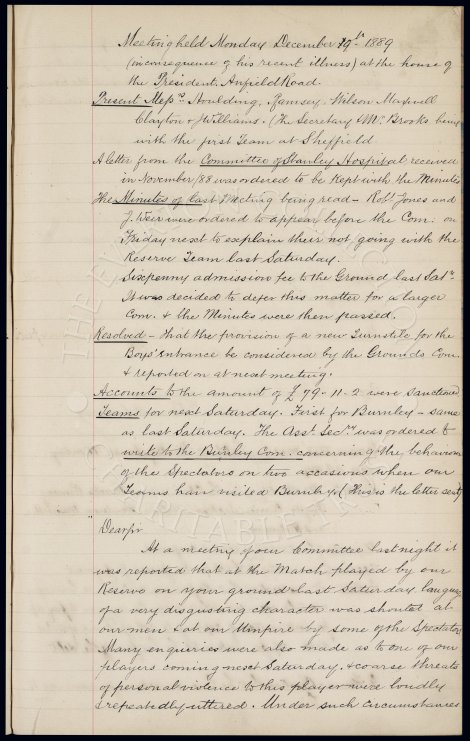 Meeting held Monday December 19th 1889
(in consequence of his recent illness) at the house of
the President, Anfield Road.
Present Messrs Houlding, Ramsey, Wilson Maxwell
Clayton & J Williams. (The Secretary & Mr. Brooks being
with the first Team at Sheffield
A letter from the Committee of Stanley Hospital received
in November /88 was ordered to be kept with the Minutes
The Minutes of last Meeting being read - Robt Jones and
J. Weir were ordered to appear before the Com. on
Friday next to explain their not going with the
Reserve Team last Saturday.
Sixpenny admission fee to the Ground last Saty.
It was decided to defer this matter for a larger
Com. & the Minutes were then passed.
Resolved - That the provision of a new Turnstile for the
Boys' entrance be considered by the Grounds Com.
& reported on at next meeting.
Accounts to the amount of £79-11-2 were sanctioned
Teams for next Saturday. First for Burnley - same
as last Saturday. The Asst Secy was ordered to
write to the Burnley Com. concerning the behaviour
of the Spectators on two occasions when our
Teams have visited Burnley. (This is the letter sent)
Dear Sir
At a meeting of our Committee last night it
was reported that at the Match played by our
Reserve on your ground last Saturday language
of a very disgusting character was shouted at
our men & at our Umpire by some of the Spectators
Many enquiries were also made as to one of our
players coming next Saturday, & coarse threats
of personal violence to this player were loudly
& repeatedly uttered. Under such circumstances